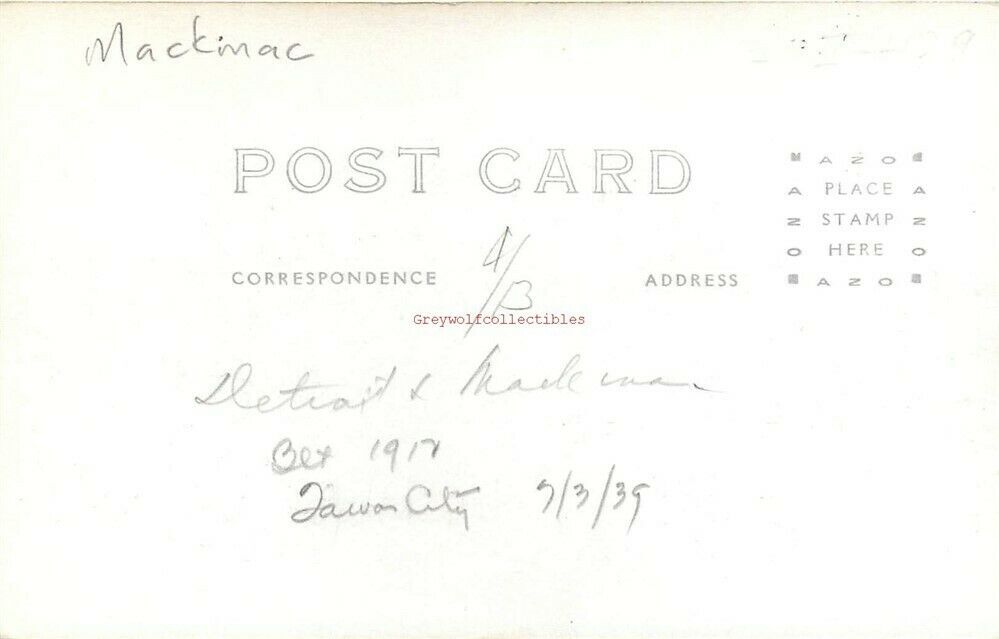 Mackinac
POST CARD
AZO
A PLACE A
Z STAMP Z
O HERE O
AZO
CORRESPONDENCE
ADDRESS
Greywolfcollectibles
Detroit & Mackinac
Blt 1917
Tawas City 9/3/39